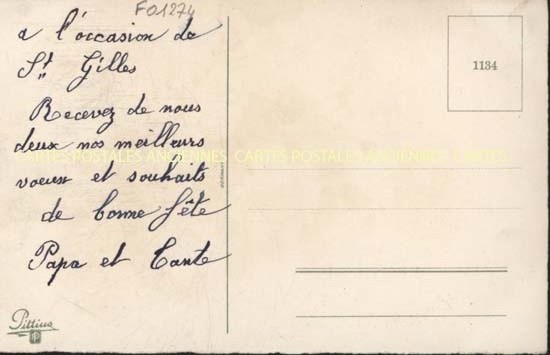 F01274
a l'occasion de
St Gilles
Recevez de nous
deux nos meilleurs
voeux et souhaits
de bonne fête
Papa et Tante
1134
CARTES POSTALES ANCIENNES CARTES POSTALES ANCIENNES CARTES
Pittius